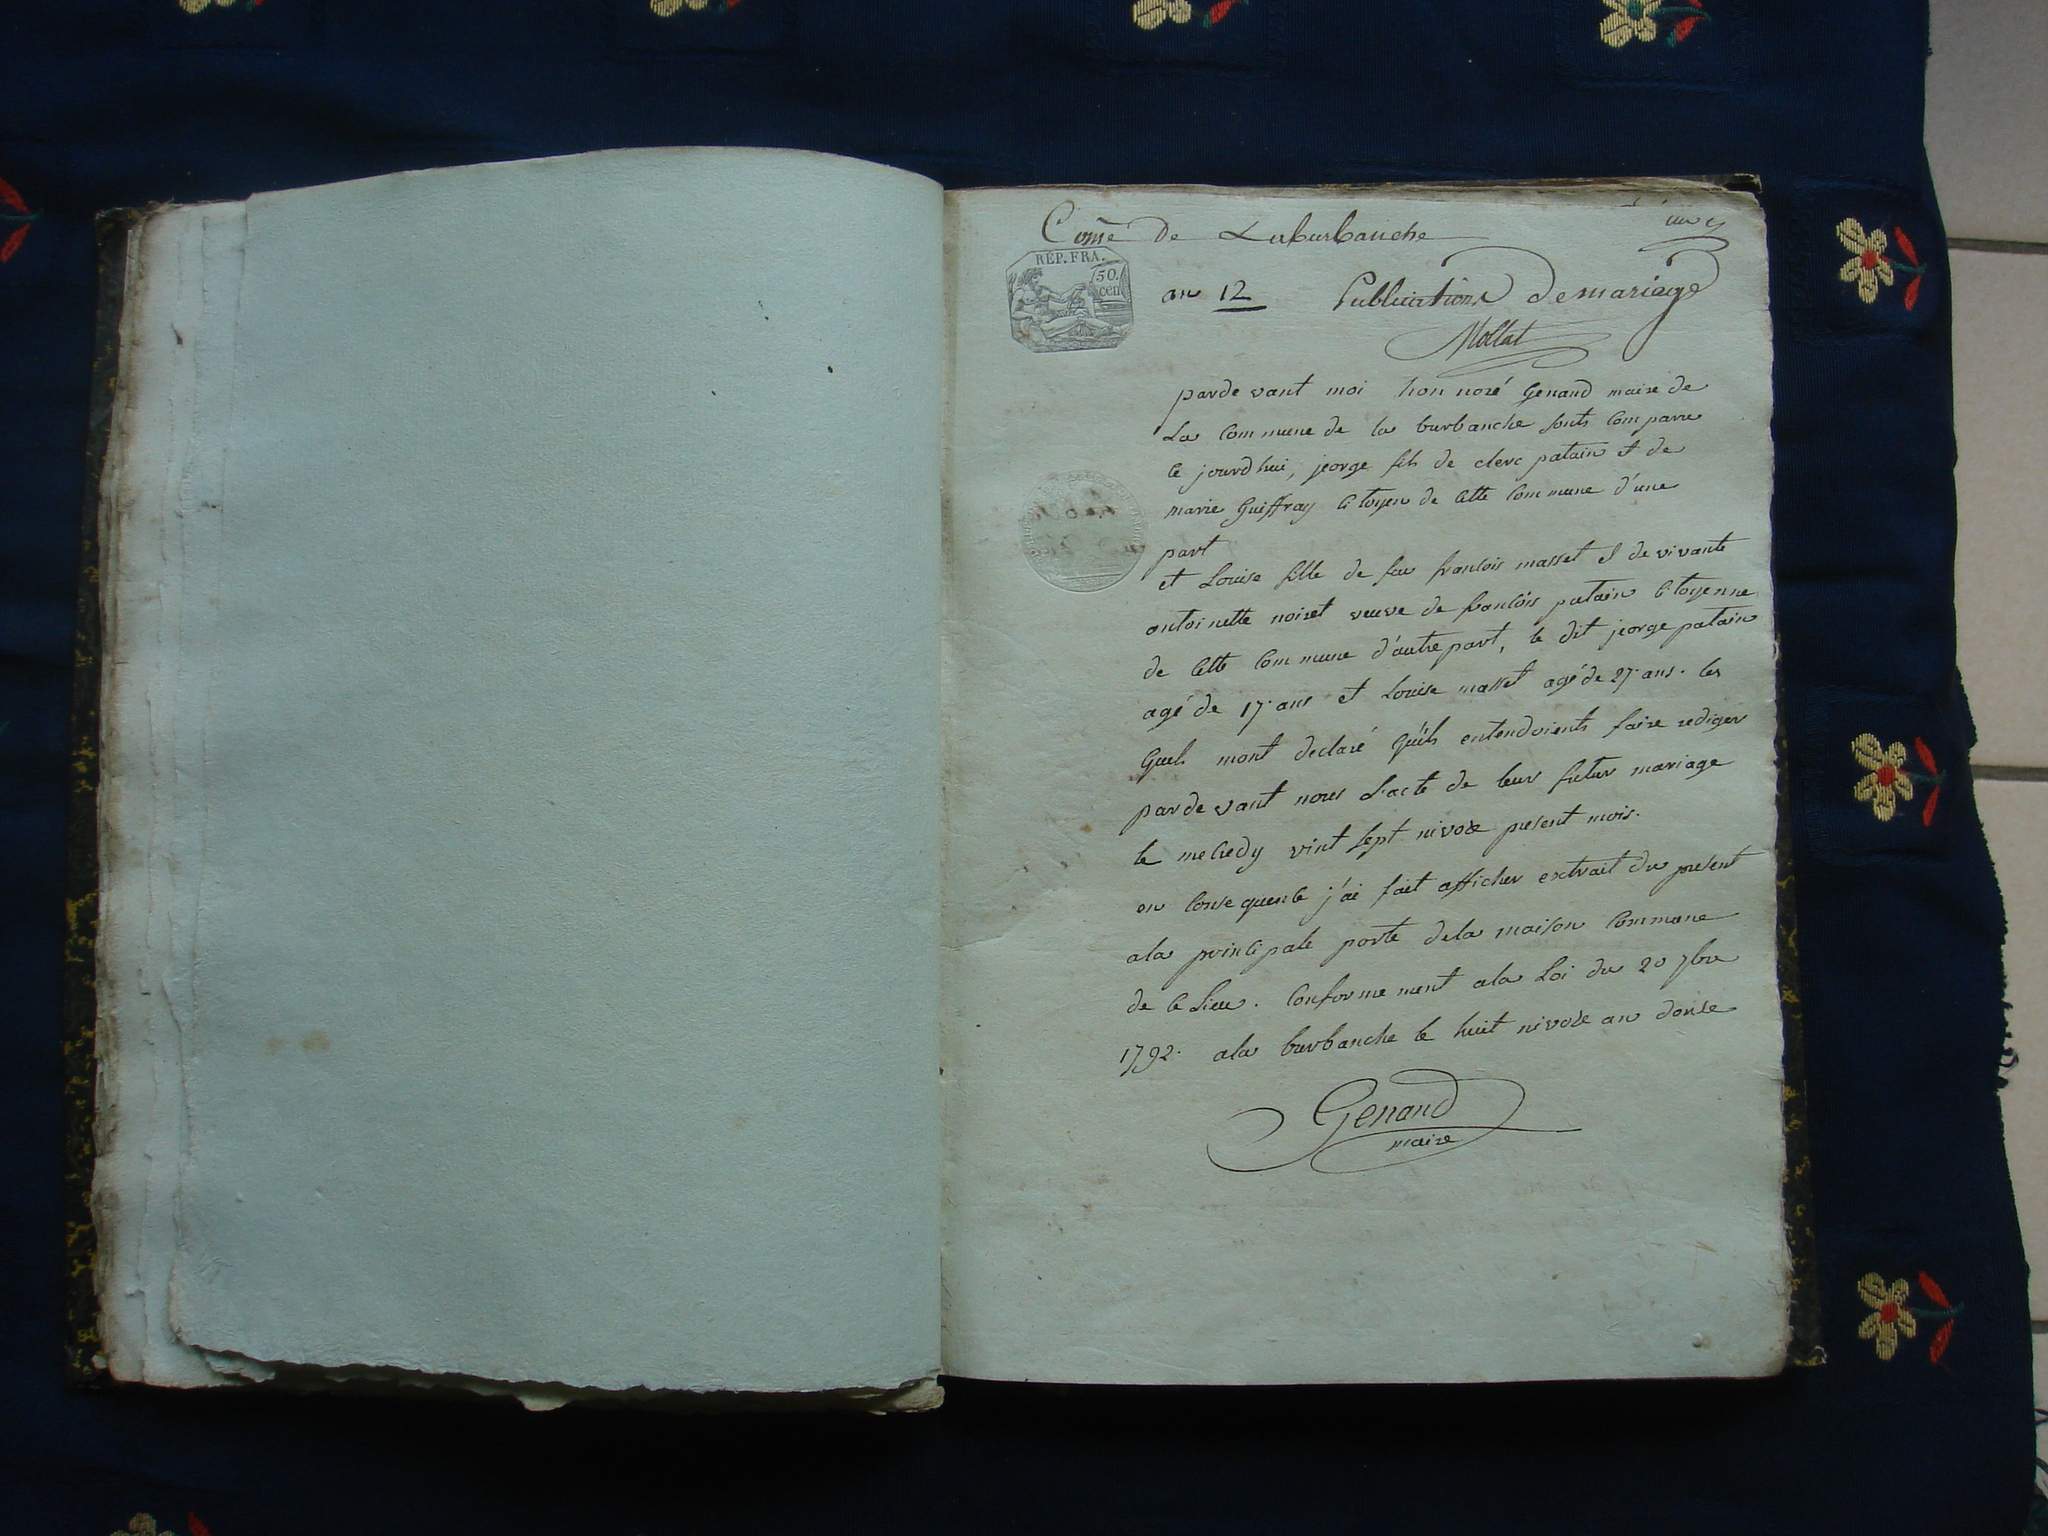 Comé de Laburbanche
REP. FRA.
50.
cen
an 12 Publications de mariage
Mollat
parde vant moi honnoré Genand maire de
La Commune de la burbanche sonts Comparu
Ce jourdhui, jeorge fils de clerc patain et de
marie Guiffray Citoyen de Cette Commune d'une
part
et Louise fille de feu francois masset et de vivante
antoinette noiret veuve de francois patain Citoyenne
de Cette Commune d'autre part, le dit jeorge patain
agé de 17. ans et Louise masset agé de 27. ans. les
quels mont declaré qu'ils entendoients faire rediger
parde vant nous L'acte de leur futur mariage
le mecredy vint sept nivose present mois.
en Conse quence j'ai fait afficher extrait du present
ala principale porte dela maison Commune
de Ce Lieu. Conformement ala Loi du 20 7bre
1792. ala burbanche le huit nivose an douse
Genand
maire